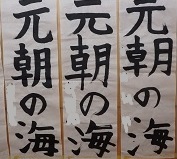 元朝の海
元朝の海
元朝の海